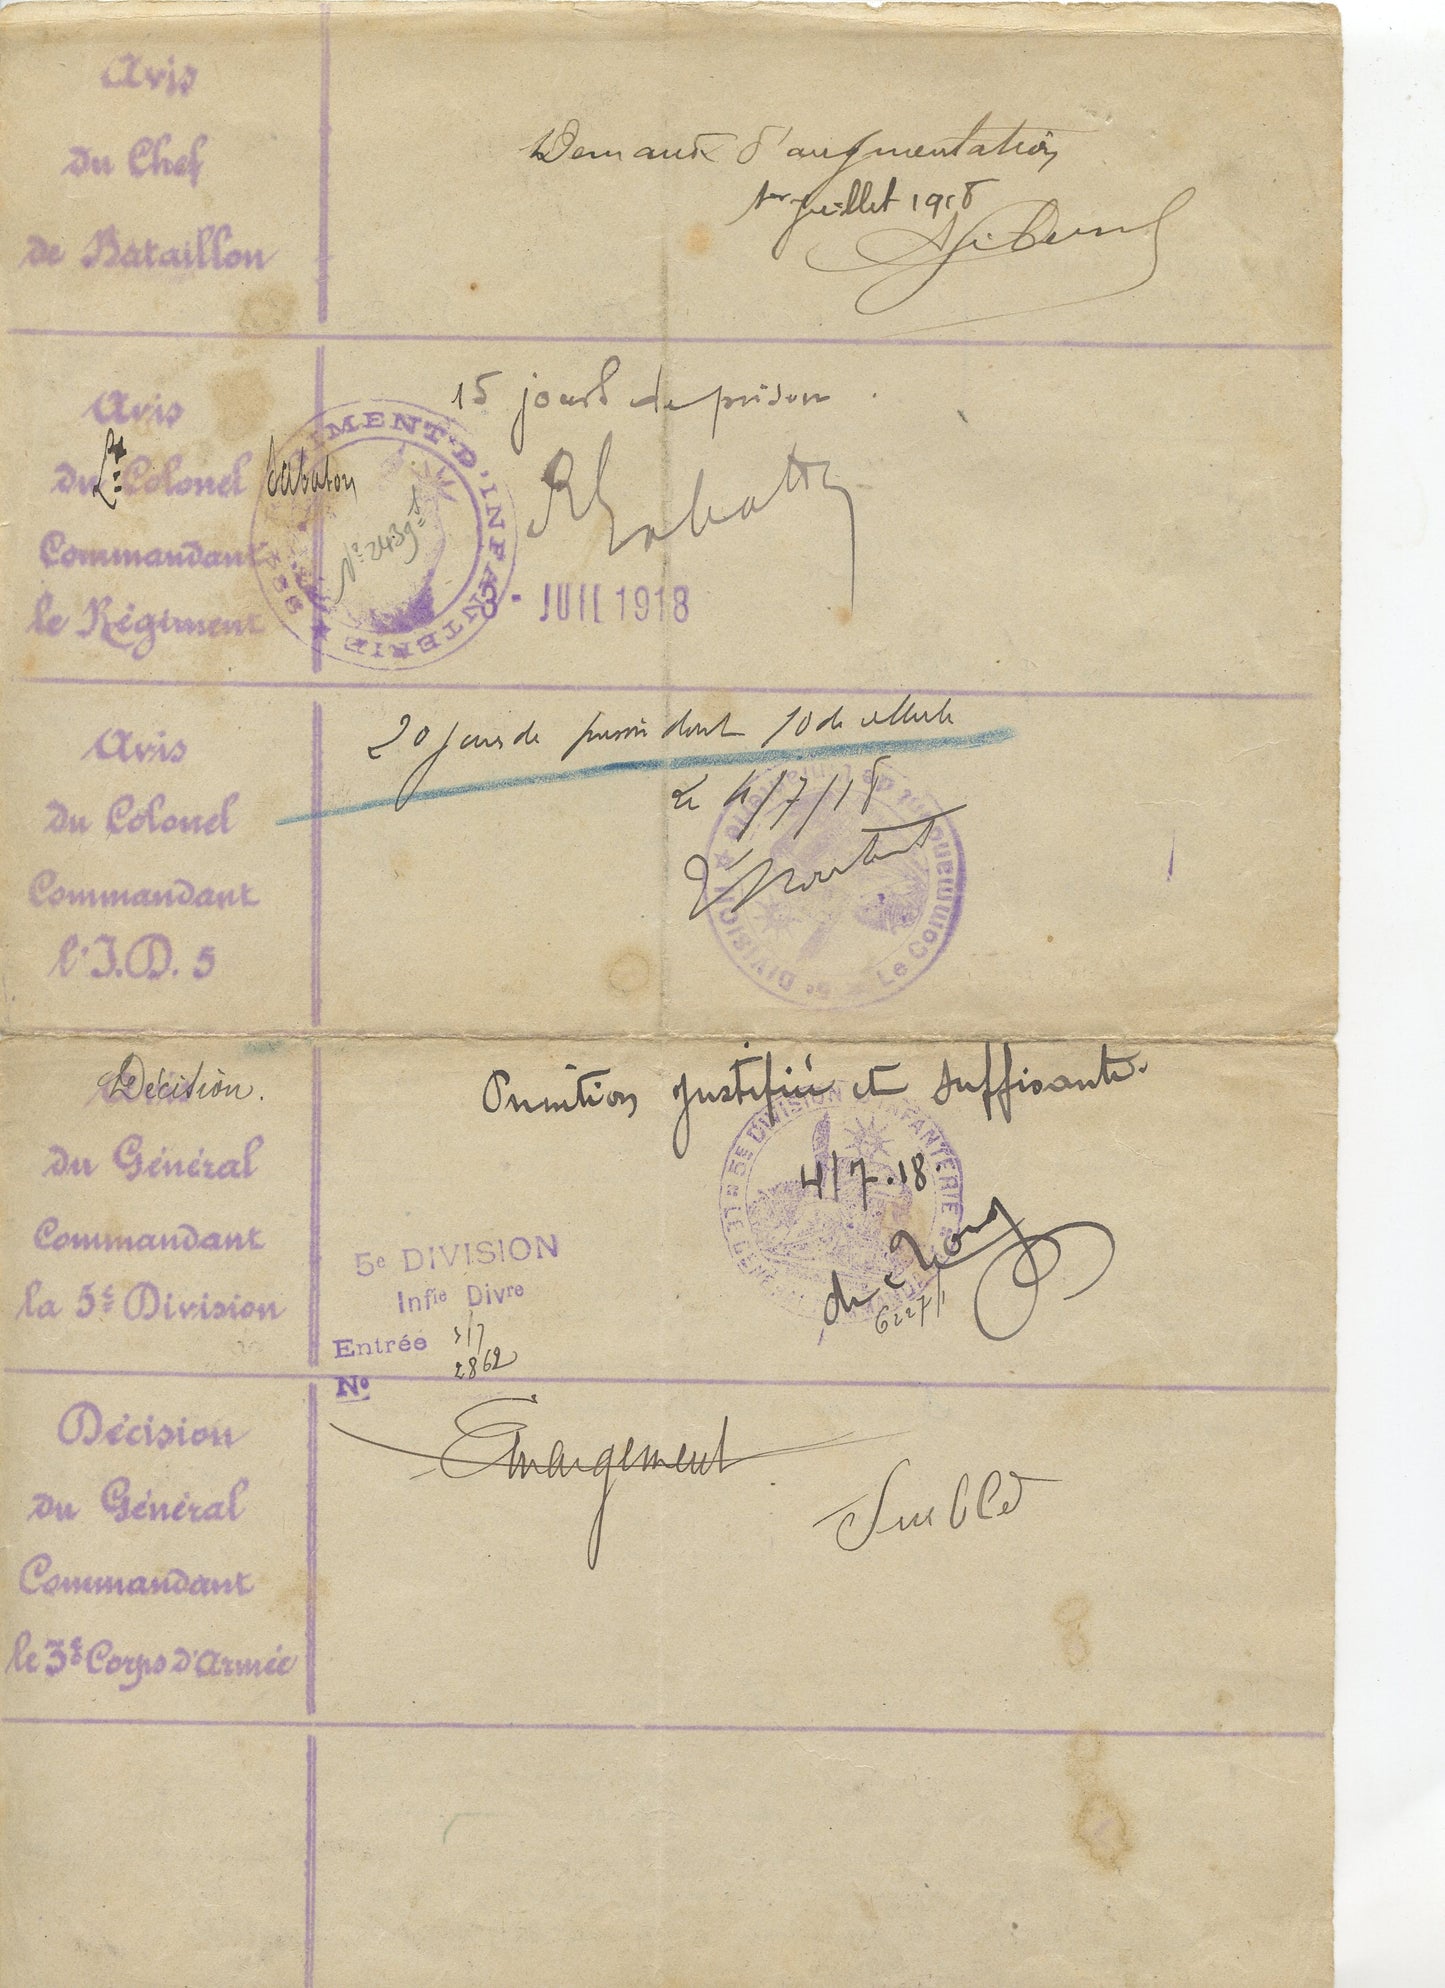 Avis
du Chef
de Bataillon
Demande d'augmentation
1er juillet 1918
Avis
du Lt Colonel
Commandant
le Régiment
Sabaton
15 jours de prison.
IMENT D'INFANTERIE
No 2439
JUIL 1918
Avis
du Colonel
Commandant
l'I.D. 5
20 jours de prison dont 10 de cellule
Le 4/7/18
5e DIVISION
Le Commandant
Décision.
du Général
Commandant
la 5e Division
Punition justifiée et suffisante.
4/7.18.
5E DIVISION D'INFANTERIE
6227/1
5e DIVISION
Infie Divre
Entrée 5/7
No 2862
Décision
du Général
Commandant
le 3e Corps d'Armée
Emargement